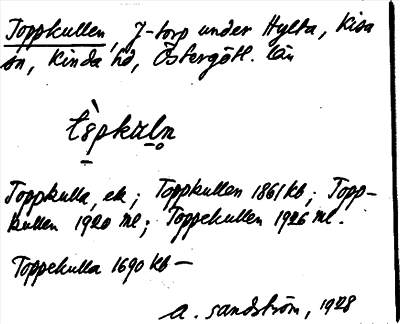 Toppkullen, f-torp under Hylta, Kisa
sn, Kinda hd, Östergötl. län
tòpkuln
Toppkulla, ek; Toppkullen 1861 kb; Topp-
kullen 1920 ml; Toppekullen 1926 ml.
Toppekulla 1690 kb —
A. Sandström, 1928